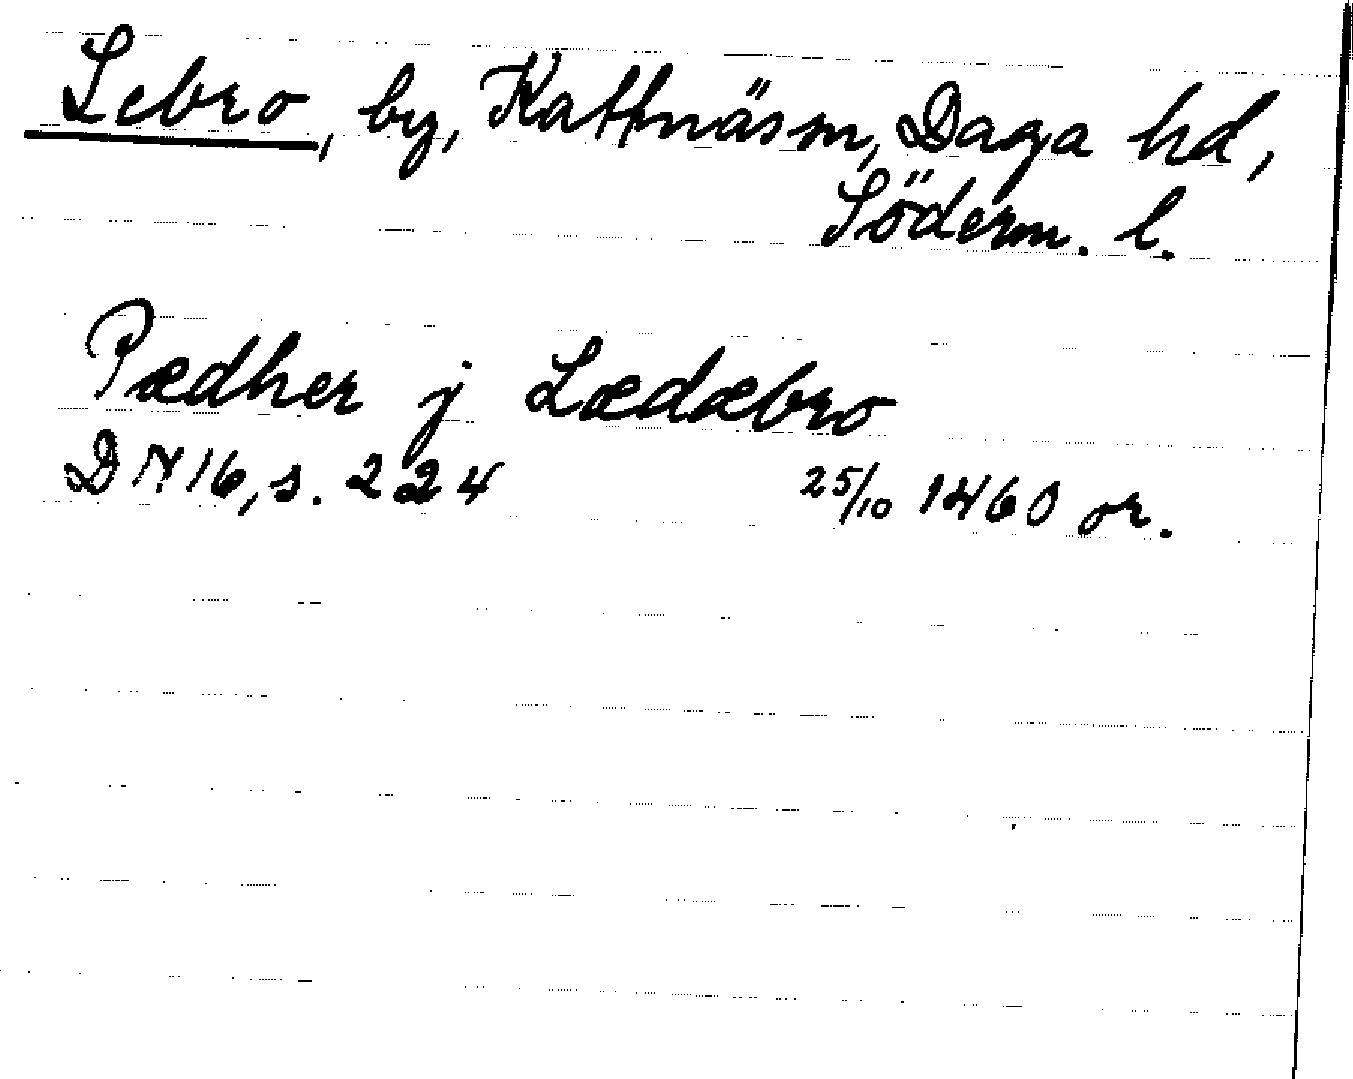 Lebro, by, Kattnäs sn, Daga hd,
Söderm. l.
Pædher j Lædæbro
DN 16, s. 224 25/10 1460 or.